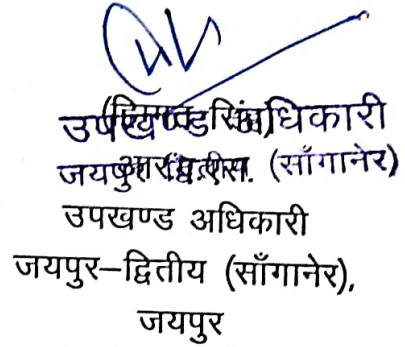 उपखण्ड अधिकारी
जयपुर (साँगानेर)
उपखण्ड अधिकारी
जयपुर–द्वितीय (साँगानेर),
जयपुर